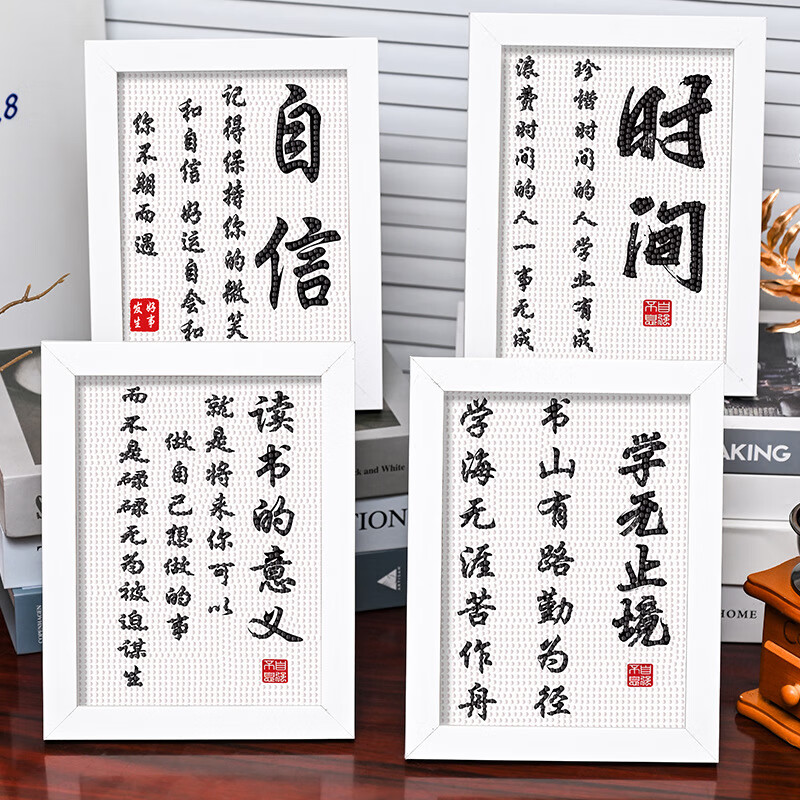 自信
记得保持你的微笑
和自信 好运自会和
你不期而遇
好事
发生
时间
珍惜时间的人学业有成
浪费时间的人一事无成
自强
不息
读书的意义
就是将来你可以
做自己想做的事
而不是碌碌无为被迫谋生
自强
不息
学无止境
书山有路勤为径
学海无涯苦作舟
自强
不息
8
ck and White
TION
AKING
HOME